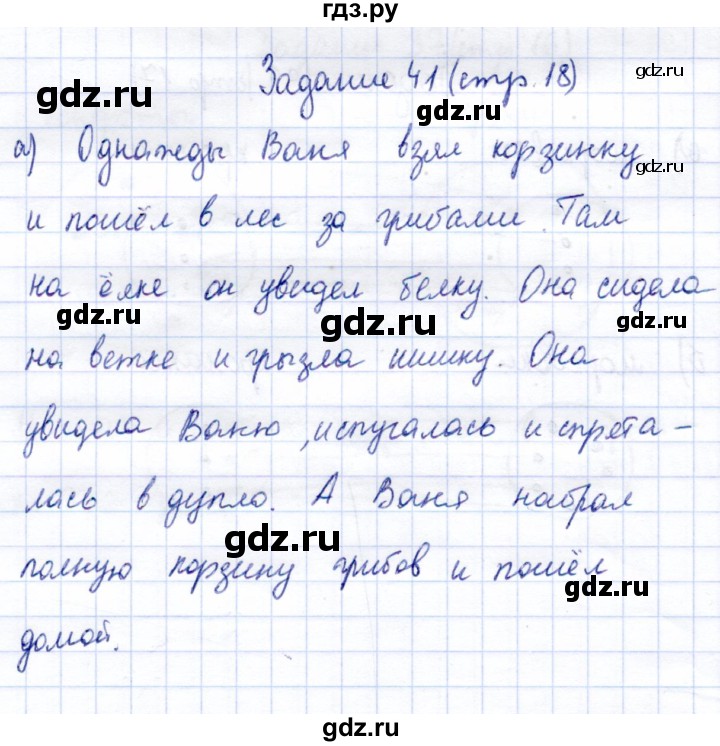 гдз.ру
Задание 41 (стр. 18)
gdz.ru
gdz.ru
а) Однажды Ваня взял корзинку
gdz.ru
и пошёл в лес за грибами. Там
на ёлке он увидел белку. Она сидела
gdz.ru
gdz.ru
gdz.ru
на ветке и грызла шишку. Она
увидела Ваню, испугалась и спрята-
лась в дупло. А Ваня набрал
gdz.ru
полную корзину грибов и пошёл
gdz.ru
домой.
gdz.ru